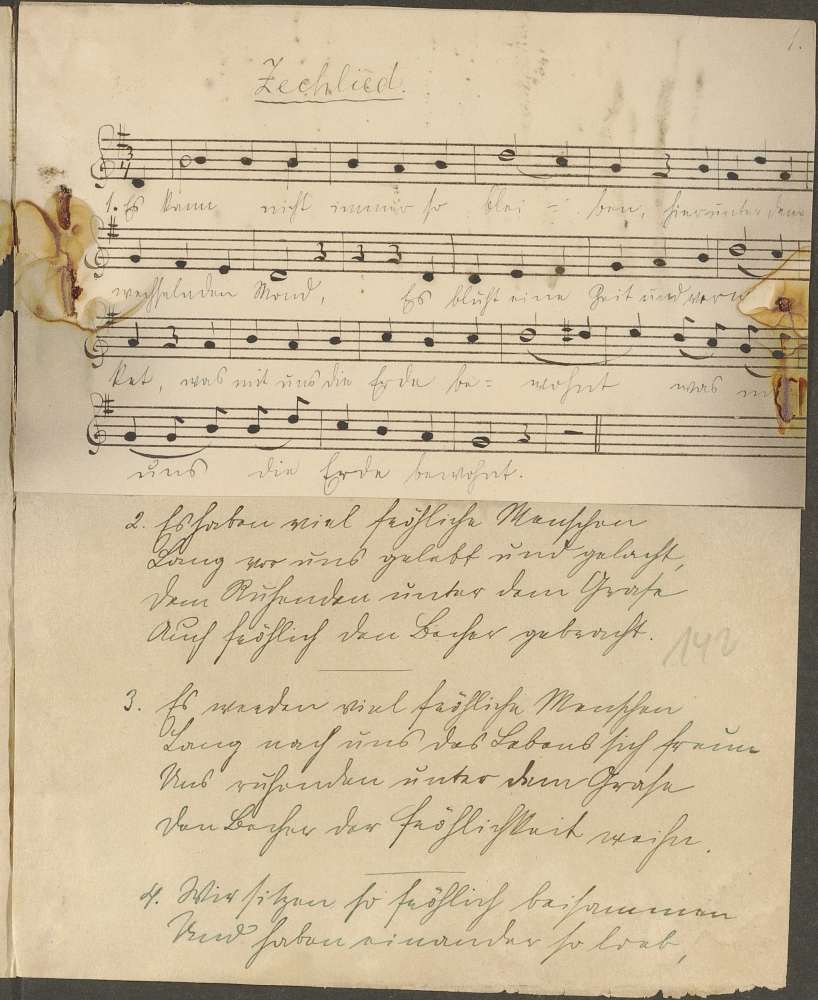 1.
Zechlied.
1. Es kann nicht immer so blei - ben, hier unter dem
wechselnden Mond, Es blüht eine Zeit und verw
ket, was mit uns die Erde be= wohnt was m
uns die Erde bewohnt.
2. Es haben viel fröhliche Menschen
Lang vor uns gelebt und gelacht,
Dem Ruhenden unter dem Grase
Auch fröhlich den Becher gebracht.
142
3. Es werden viel fröhliche Menschen
Lang nach uns des Lebens sich freun
Uns ruhenden unter dem Grase
Den Becher der Fröhlichkeit weihn.
4. Wir sitzen so fröhlich beisammen
Und haben einander so lieb,